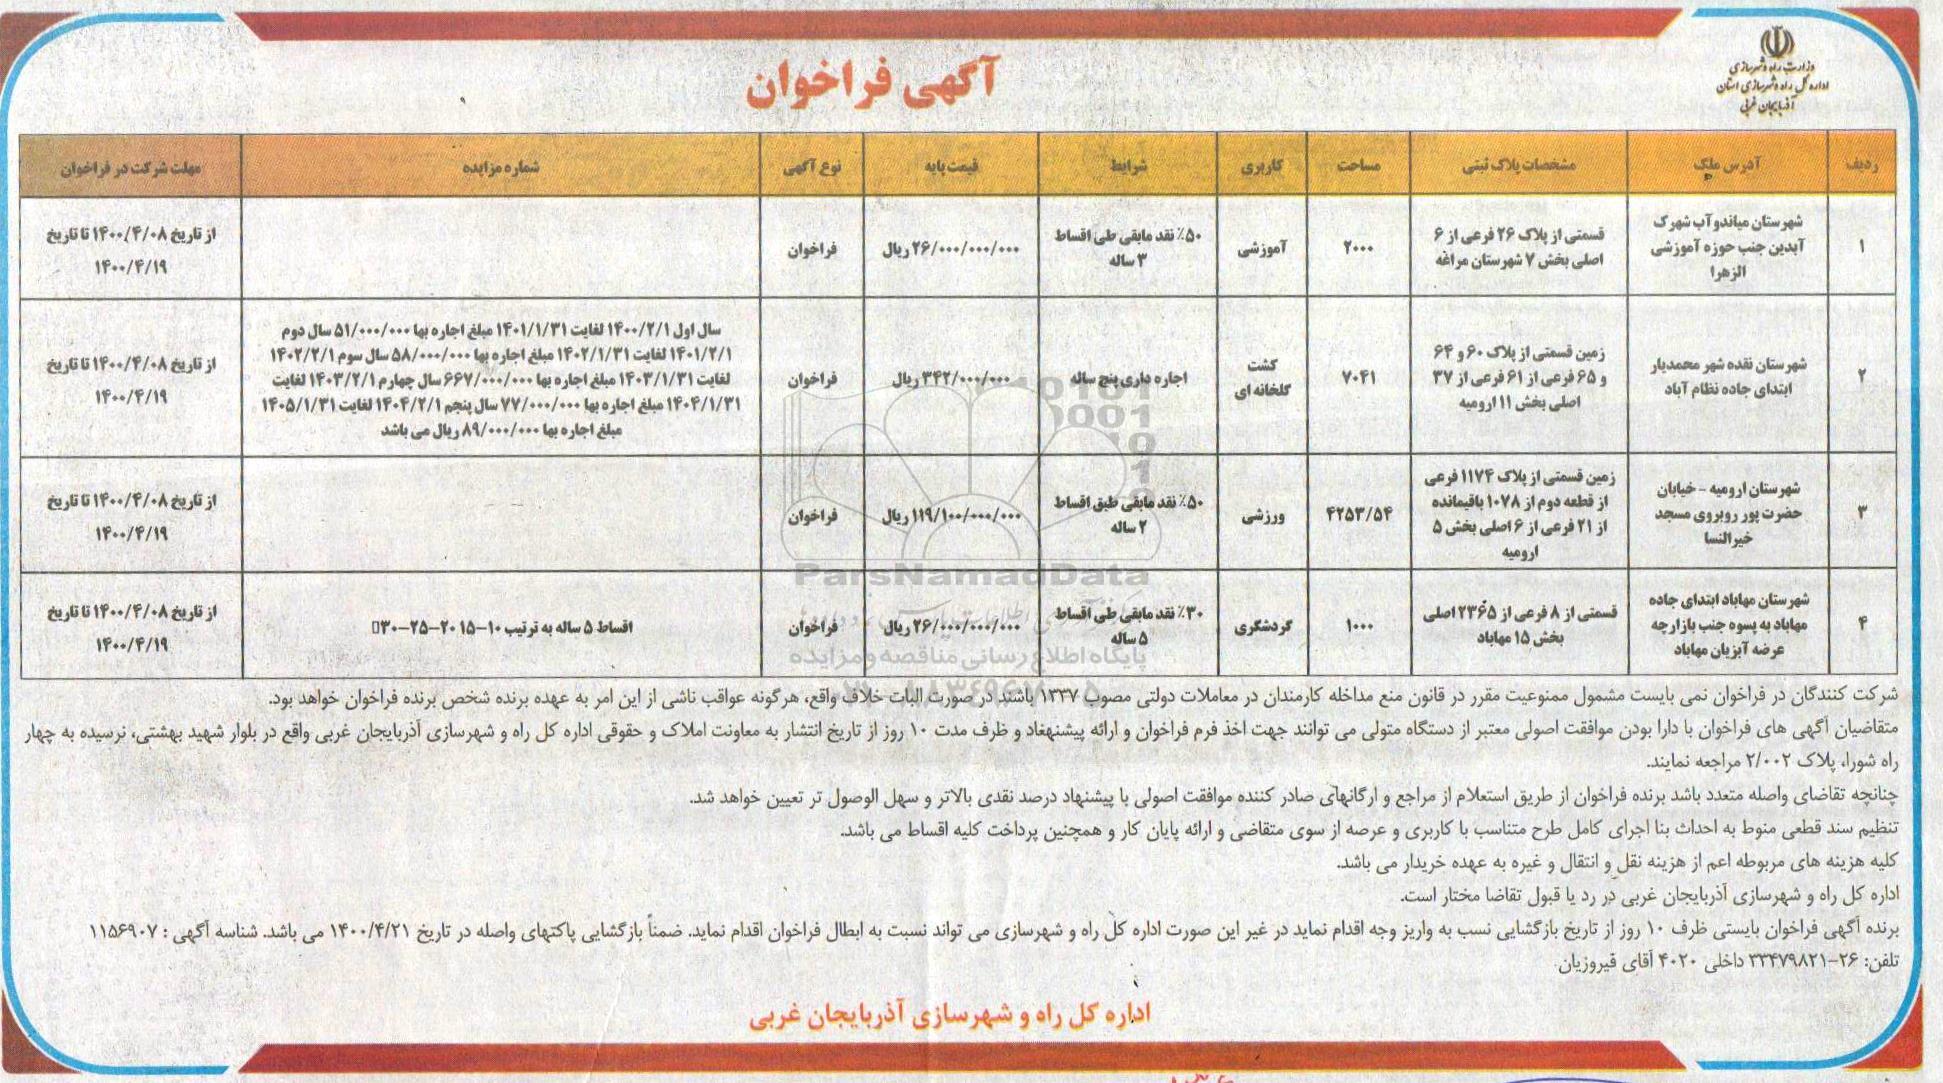 وزارت راه و شهرسازی
اداره کل راه و شهرسازی استان
آذربایجان غربی
آگهی فراخوان
ردیف
آدرس ملک
مشخصات پلاک ثبتی
مساحت
کاربری
شرایط
قیمت پایه
نوع آگهی
شماره مزایده
مهلت شرکت در فراخوان
۱
شهرستان میاندوآب شهرک
آیدین جنب حوزه آموزشی
الزهرا
قسمتی از پلاک ۲۶ فرعی از ۶
اصلی بخش ۷ شهرستان مراغه
۲۰۰۰
آموزشی
۵۰٪ نقد مابقی طی اقساط
۳ ساله
۲۶/۰۰۰/۰۰۰/۰۰۰ ریال
فراخوان
از تاریخ ۱۴۰۰/۴/۰۸ تا تاریخ
۱۴۰۰/۴/۱۹
۲
شهرستان نقده شهر محمدیار
ابتدای جاده نظام آباد
زمین قسمتی از پلاک ۶۰ و ۶۴
و ۶۵ فرعی از ۶۱ فرعی از ۳۷
اصلی بخش ۱۱ ارومیه
۷۰۴۱
کشت
گلخانه ای
اجاره داری پنج ساله
۳۴۲/۰۰۰/۰۰۰ ریال
فراخوان
سال اول ۱۴۰۰/۲/۱ لغایت ۱۴۰۱/۱/۳۱ مبلغ اجاره بها ۵۱/۰۰۰/۰۰۰ سال دوم
۱۴۰۱/۲/۱ لغایت ۱۴۰۲/۱/۳۱ مبلغ اجاره بها ۵۸/۰۰۰/۰۰۰ سال سوم ۱۴۰۲/۲/۱
لغایت ۱۴۰۳/۱/۳۱ مبلغ اجاره بها ۶۶۷/۰۰۰/۰۰۰ سال چهارم ۱۴۰۳/۲/۱ لغایت
۱۴۰۴/۱/۳۱ مبلغ اجاره بها ۷۷/۰۰۰/۰۰۰ سال پنجم ۱۴۰۴/۲/۱ لغایت ۱۴۰۵/۱/۳۱
مبلغ اجاره بها ۸۹/۰۰۰/۰۰۰ ریال می باشد
از تاریخ ۱۴۰۰/۴/۰۸ تا تاریخ
۱۴۰۰/۴/۱۹
۳
شهرستان ارومیه - خیابان
حضرت پور روبروی مسجد
خیرالنسا
زمین قسمتی از پلاک ۱۱۷۴ فرعی
از قطعه دوم از ۱۰۷۸ باقیمانده
از ۲۱ فرعی از ۶ اصلی بخش ۵
ارومیه
۴۲۵۳/۵۴
ورزشی
۵۰٪ نقد مابقی طبق اقساط
۲ ساله
۱۱۹/۱۰۰/۰۰۰/۰۰۰ ریال
فراخوان
از تاریخ ۱۴۰۰/۴/۰۸ تا تاریخ
۱۴۰۰/۴/۱۹
۴
شهرستان مهاباد ابتدای جاده
مهاباد به پسوه جنب بازارچه
عرضه آبزیان مهاباد
قسمتی از ۸ فرعی از ۲۳۶۵ اصلی
بخش ۱۵ مهاباد
۱۰۰۰
گردشگری
۳۰٪ نقد مابقی طی اقساط
۵ ساله
۲۶/۰۰۰/۰۰۰/۰۰۰ ریال
فراخوان
اقساط ۵ ساله به ترتیب ۱۰-۱۵-۲۰-۲۵-۳۰
از تاریخ ۱۴۰۰/۴/۰۸ تا تاریخ
۱۴۰۰/۴/۱۹
ParsNamadData
پایگاه اطلاع رسانی مناقصه و مزایده
شرکت کنندگان در فراخوان نمی بایست مشمول ممنوعیت مقرر در قانون منع مداخله کارمندان در معاملات دولتی مصوب ۱۳۳۷ باشند در صورت اثبات خلاف واقع، هرگونه عواقب ناشی از این امر به عهده برنده شخص برنده فراخوان خواهد بود.
متقاضیان آگهی های فراخوان با دارا بودن موافقت اصولی معتبر از دستگاه متولی می توانند جهت اخذ فرم فراخوان و ارائه پیشنهغاد و ظرف مدت ۱۰ روز از تاریخ انتشار به معاونت املاک و حقوقی اداره کل راه و شهرسازی آذربایجان غربی واقع در بلوار شهید بهشتی، نرسیده به چهار
راه شورا، پلاک ۲/۰۰۲ مراجعه نمایند.
چنانچه تقاضای واصله متعدد باشد برنده فراخوان از طریق استعلام از مراجع و ارگانهای صادر کننده موافقت اصولی با پیشنهاد درصد نقدی بالاتر و سهل الوصول تر تعیین خواهد شد.
تنظیم سند قطعی منوط به احداث بنا اجرای کامل طرح متناسب با کاربری و عرصه از سوی متقاضی و ارائه پایان کار و همچنین پرداخت کلیه اقساط می باشد.
کلیه هزینه های مربوطه اعم از هزینه نقل و انتقال و غیره به عهده خریدار می باشد.
اداره کل راه و شهرسازی آذربایجان غربی در رد یا قبول تقاضا مختار است.
برنده آگهی فراخوان بایستی ظرف ۱۰ روز از تاریخ بازگشایی نسب به واریز وجه اقدام نماید در غیر این صورت اداره کل راه و شهرسازی می تواند نسبت به ابطال فراخوان اقدام نماید. ضمناً بازگشایی پاکتهای واصله در تاریخ ۱۴۰۰/۴/۲۱ می باشد. شناسه آگهی : ۱۱۵۶۹۰۷
تلفن: ۲۶-۳۳۴۷۹۸۲۱ داخلی ۴۰۲۰ آقای قیروزیان
اداره کل راه و شهرسازی آذربایجان غربی